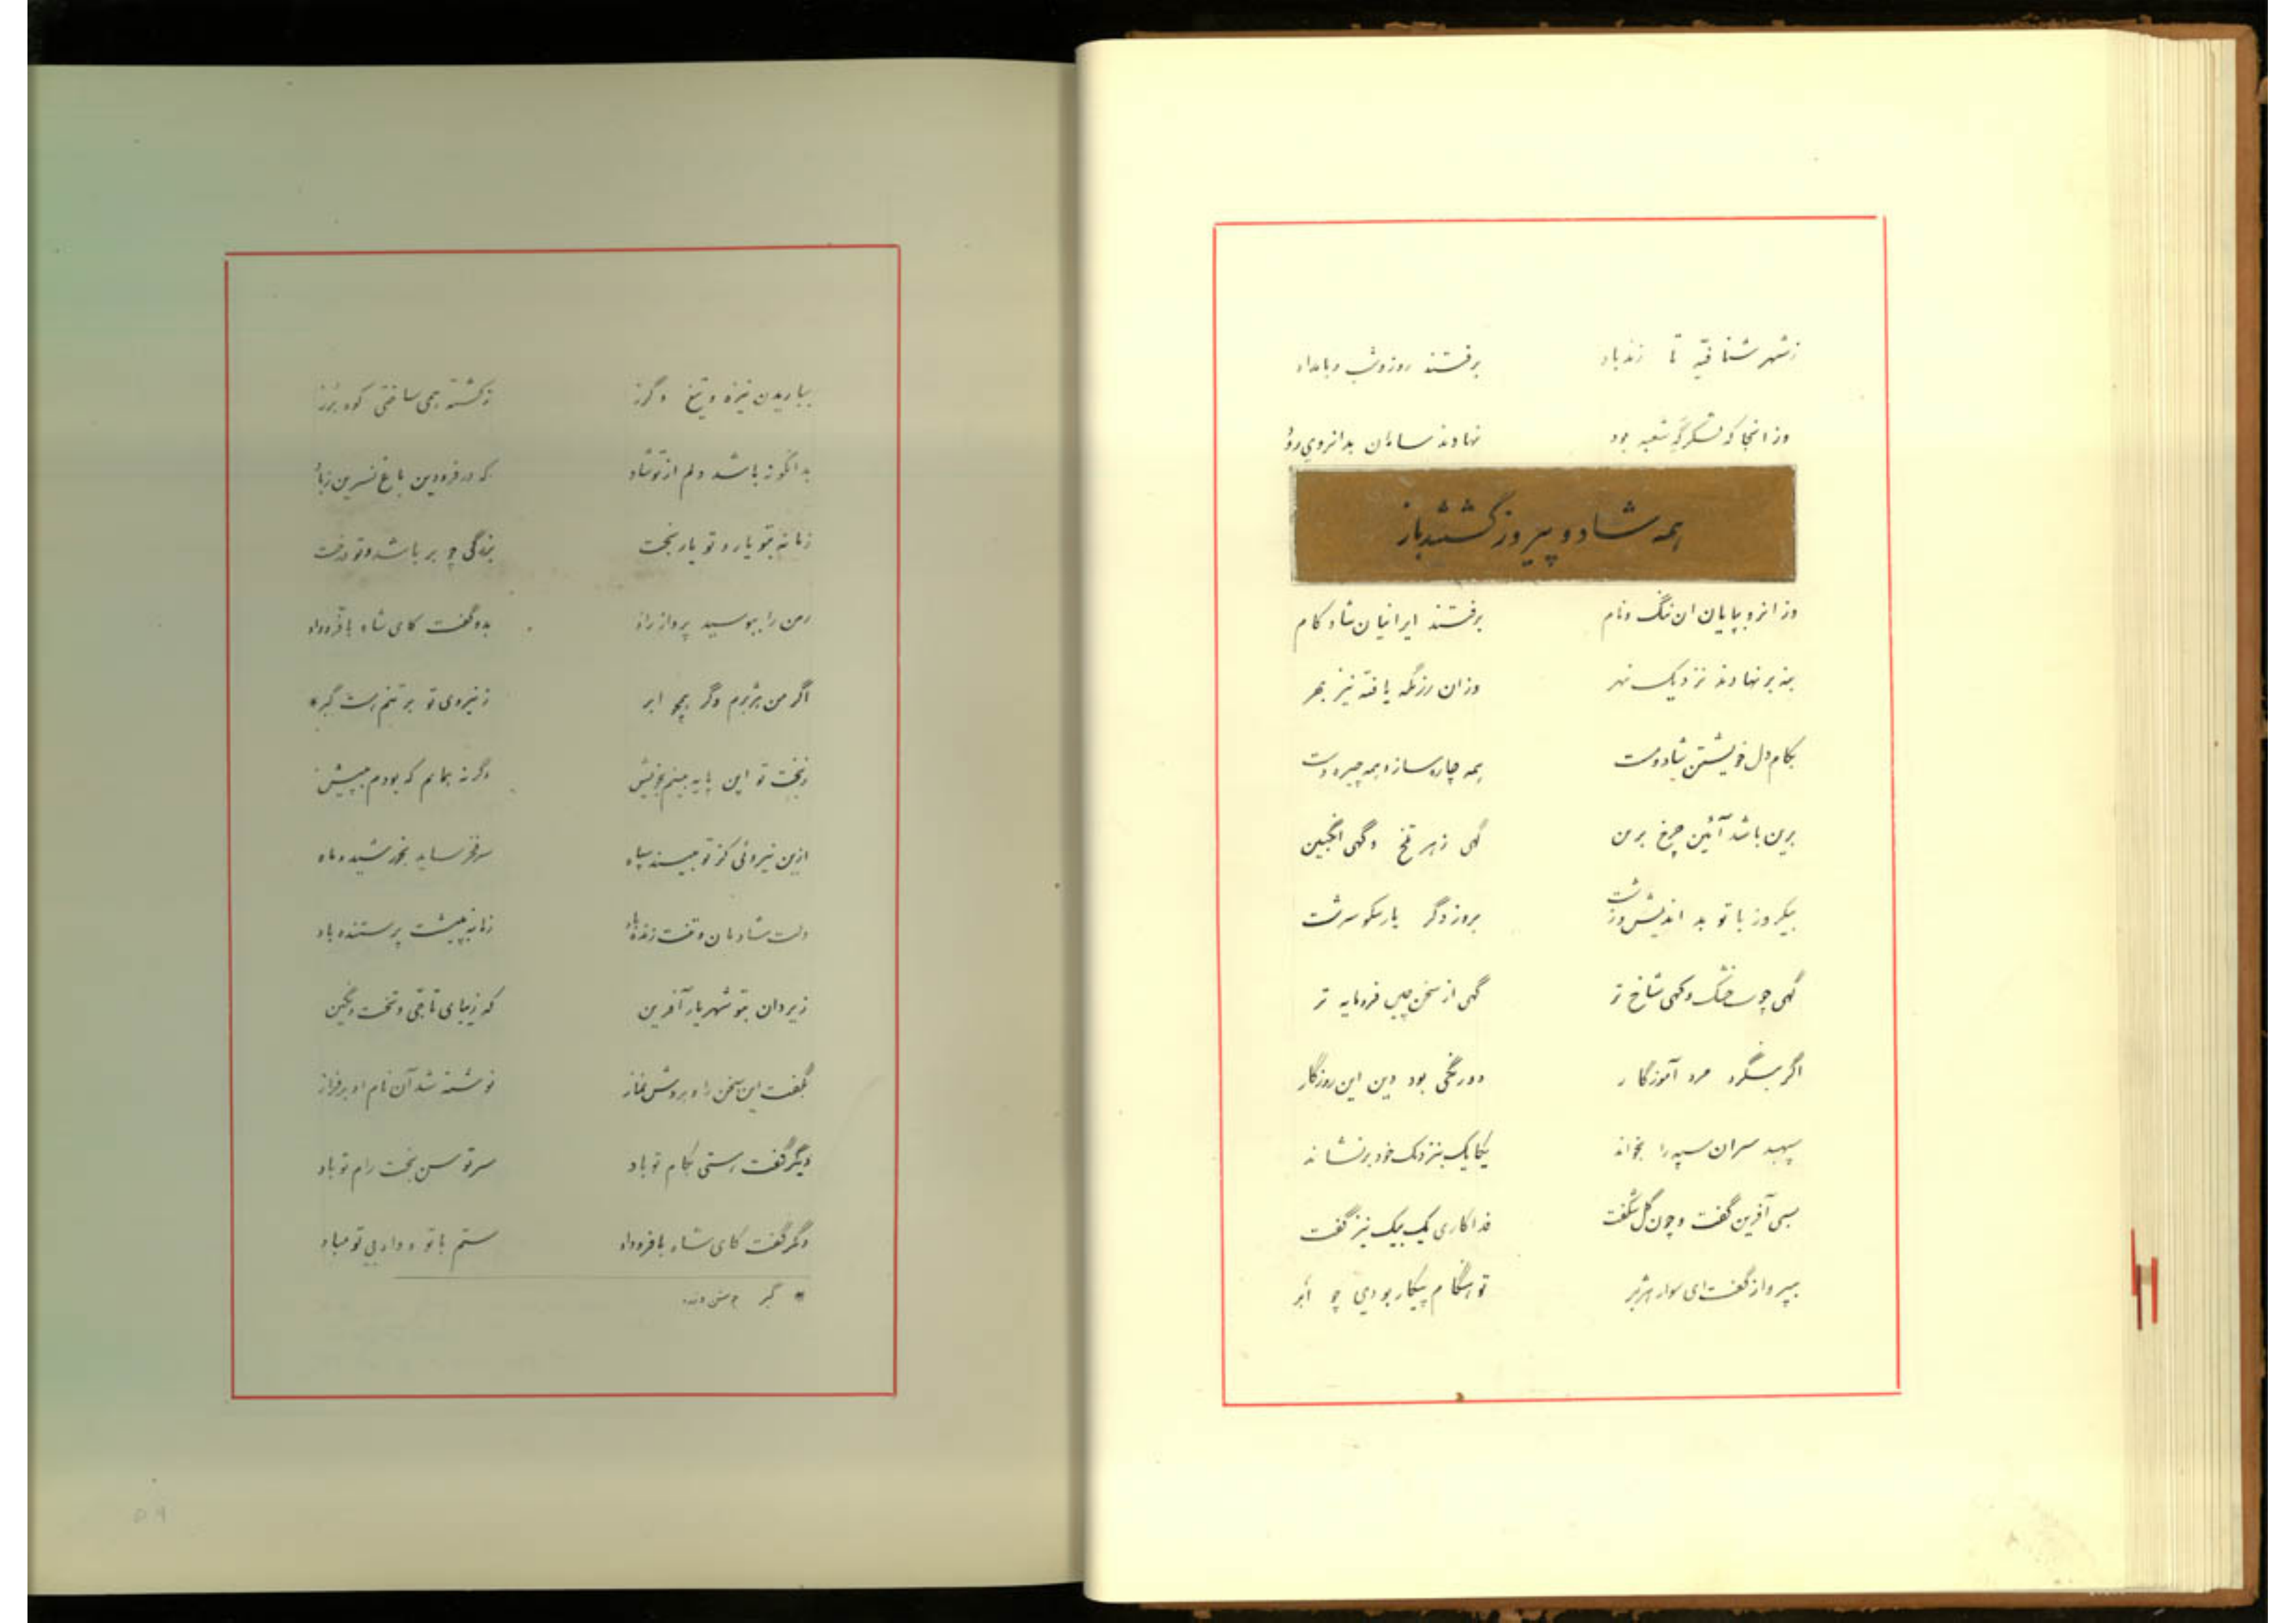 ز شهر شنافیه تا زندباد برفتند روز و شب و بامداد
وز انجا که لشکرگه شعبه بود نهادند سامان بدانروی رود
همه شاد و پیروز گشتند باز
وز انرو بپایان ان ننگ و نام برفتند ایرانیان شادکام
بنه برنهادند نزدیک نهر وزان رزمگه یافته نیز بهر
بکام دل خویشتن شاد و مست همه چاره ساز و همه چیره دست
برین باشد آئین چرخ برین گهی زهر تلخ و گهی انگبین
بیکروز با تو بد اندیش و زشت بروز دگر یار نیکو سرشت
گهی چوب خشک و گهی شاخ تر گهی از سخن چین فرومایه تر
اگر بنگرد مرد آموزگار دو رنگی بود دین این روزگار
سپهبد سران سپه را بخواند یکایک بنزدیک خود برنشاند
بسی آفرین گفت و چون گل شگفت فداکاری یک بیک نیز گفت
بپرواز گفت ای سوار هژبر تو هنگام پیکار بودی چو ابر
بباریدن نیزه و تیغ و گرز ز کشته همی ساختی کوه برز
بدانگونه باشد دلم از تو شاد که در فرودین باغ نسرین ز باد
زمانه بتو یار و تو یار بخت بزندگی چو بر باشد و تو درخت
زمین را ببوسید پرواز راد بدو گفت کای شاه بافر و داد
اگر من هژبرم وگر همچو ابر ز نیروی تو بر تنم هست گبر*
ز بخت تو این پایه بینم بخویش وگرنه همانم که بودم ز پیش
ازین نیروئی کز تو بیند سپاه سر فخر ساید بخورشید و ماه
دلت شادمان و تنت زنده باد زمانه به پیشت پرستنده باد
ز یزدان بتو شهریار آفرین که زیبای تاجی و تخت و نگین
بگفت این سخن را و بردش نماز نوشته شد آن نام او بر فراز
دیگر گفت هستی بکام تو باد سر توسن بخت رام تو باد
دگر گفت کای شاه بافر و داد ستم با تو و داد بی تو مباد
* گبر جوشن